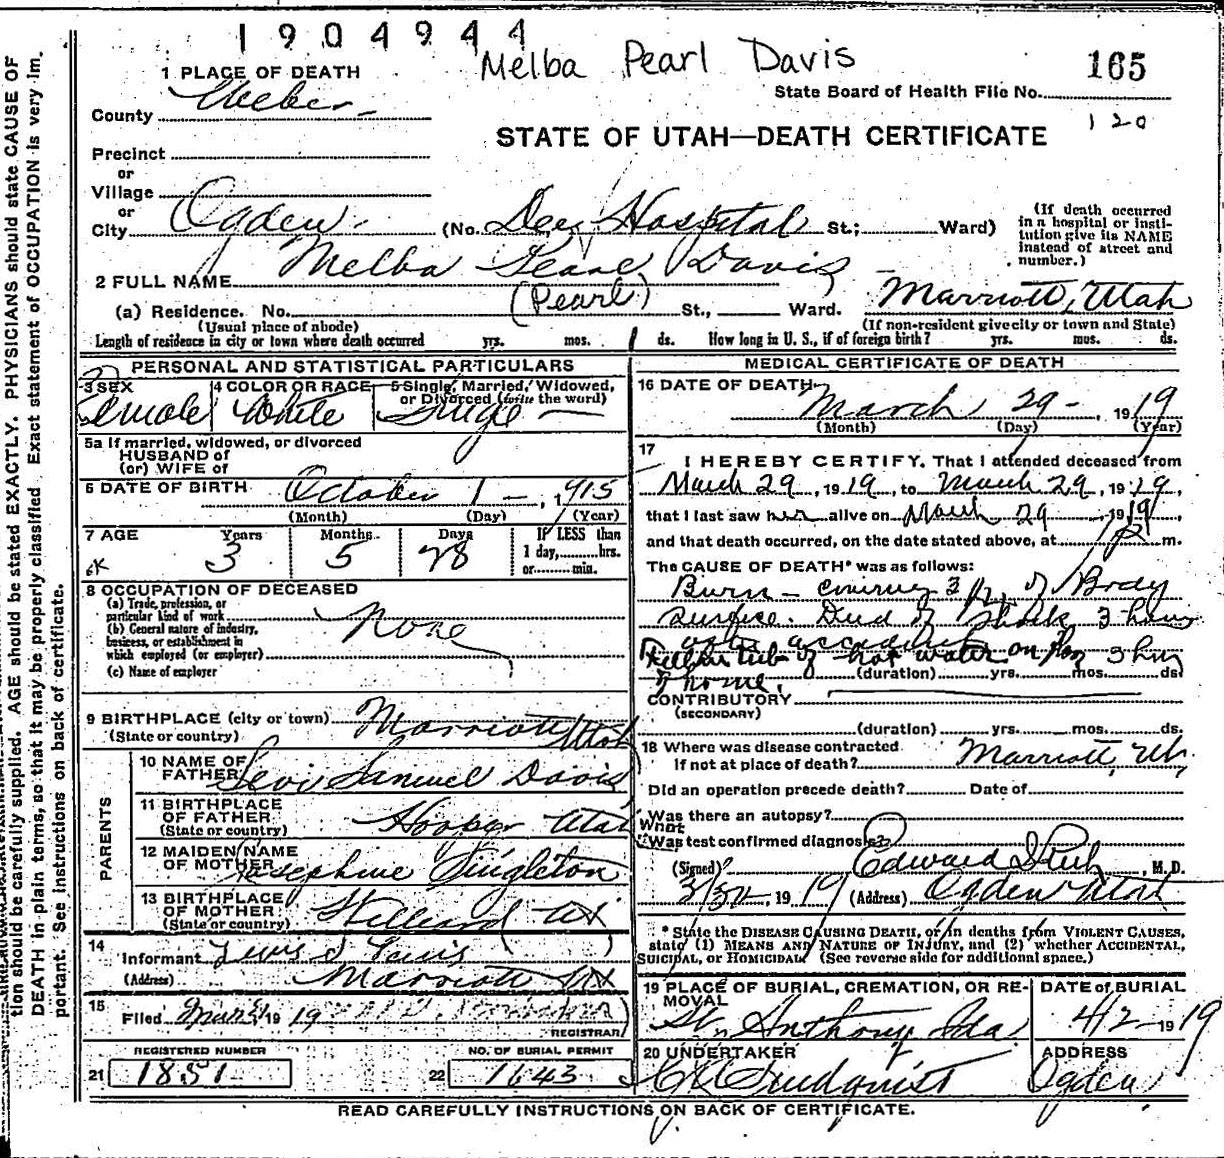 1904944
Melba Pearl Davis
165
1 PLACE OF DEATH
State Board of Health File No.
County Weber
120
STATE OF UTAH—DEATH CERTIFICATE
Precinct
or
Village
or
City Ogden (No. Dee Hospital St.; Ward)
(If death occurred in a hospital or institution give its NAME instead of street and number.)
2 FULL NAME Melba Pearl Davis
(Pearl)
(a) Residence. No. St., Ward. Marriott, Utah
(Usual place of abode) (If non-resident give city or town and State)
Length of residence in city or town where death occurred yrs. mos. 1 ds. How long in U. S., if of foreign birth? yrs. mos. ds.
PERSONAL AND STATISTICAL PARTICULARS
3 SEX Female
4 COLOR OR RACE White
5 Single, Married, Widowed, or Divorced (write the word) Single
5a If married, widowed, or divorced
HUSBAND of
(or) WIFE of
6 DATE OF BIRTH October 1 - , 1915
(Month) (Day) (Year)
7 AGE Years 3 Months 5 Days 28
IF LESS than 1 day, hrs. or min.
8 OCCUPATION OF DECEASED
(a) Trade, profession, or particular kind of work None
(b) General nature of industry, business, or establishment in which employed (or employer)
(c) Name of employer
9 BIRTHPLACE (city or town) Marriott
(State or country) Utah
PARENTS
10 NAME OF FATHER Levi Samuel Davis
11 BIRTHPLACE OF FATHER (State or country) Hooper Utah
12 MAIDEN NAME OF MOTHER Josephine Singleton
13 BIRTHPLACE OF MOTHER (State or country)
14
Informant Davis
(Address) Marriott
15
Filed 19 19
REGISTRAR
REGISTERED NUMBER
21 1851
NO. OF BURIAL PERMIT
22 1643
MEDICAL CERTIFICATE OF DEATH
16 DATE OF DEATH March 29 - , 1919
(Month) (Day) (Year)
17
I HEREBY CERTIFY. That I attended deceased from
March 29, 1919, to March 29, 1919,
that I last saw her alive on March 29 1919,
and that death occurred, on the date stated above, at m.
The CAUSE OF DEATH* was as follows:
Burn - 3/4 of Body
surface. Died of Shock 3 hours
after accident
Fell in tub of hot water on floor 3 hrs
of home.
(duration) yrs. mos. ds.
CONTRIBUTORY
(SECONDARY)
(duration) yrs. mos. ds.
18 Where was disease contracted
If not at place of death? Marriott, Ut.
Did an operation precede death? Date of
Was there an autopsy?
What test confirmed diagnosis?
(Signed) Edward I Rich, M. D.
3/30, 1919 (Address) Ogden Utah
* State the DISEASE CAUSING DEATH, or in deaths from VIOLENT CAUSES,
state (1) MEANS AND NATURE OF INJURY, and (2) whether ACCIDENTAL,
SUICIDAL, or HOMICIDAL (See reverse side for additional space.)
19 PLACE OF BURIAL, CREMATION, OR REMOVAL St. Anthony Ida
DATE of BURIAL 4/2 1919
20 UNDERTAKER
ADDRESS Ogden
READ CAREFULLY INSTRUCTIONS ON BACK OF CERTIFICATE.
tion should be carefully supplied. AGE should be stated EXACTLY. PHYSICIANS should state CAUSE OF
DEATH in plain terms, so that it may be properly classified. Exact statement of OCCUPATION is very im.
portant. See instructions on back of certificate.